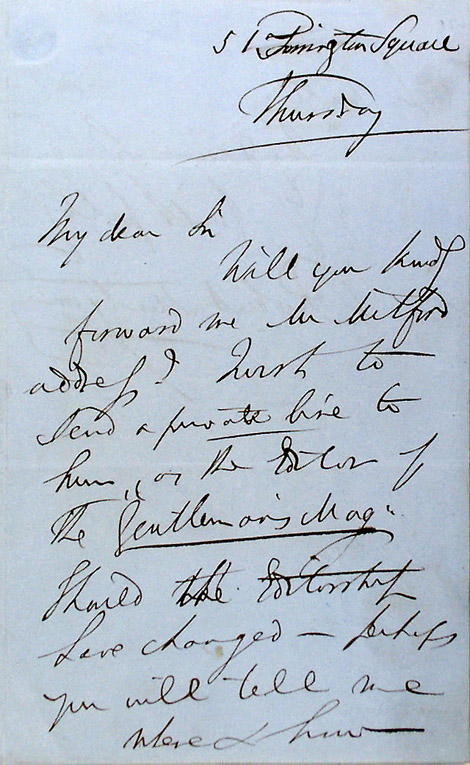 Square
Thursday
My dear Sir
Will you kindly
forward me Mr Mitford
address? I wish to
send a private line to
him, as the Editor of
the Gentleman's Mag"
Should the Editorship
have changed — perhaps
you will tell me
where &